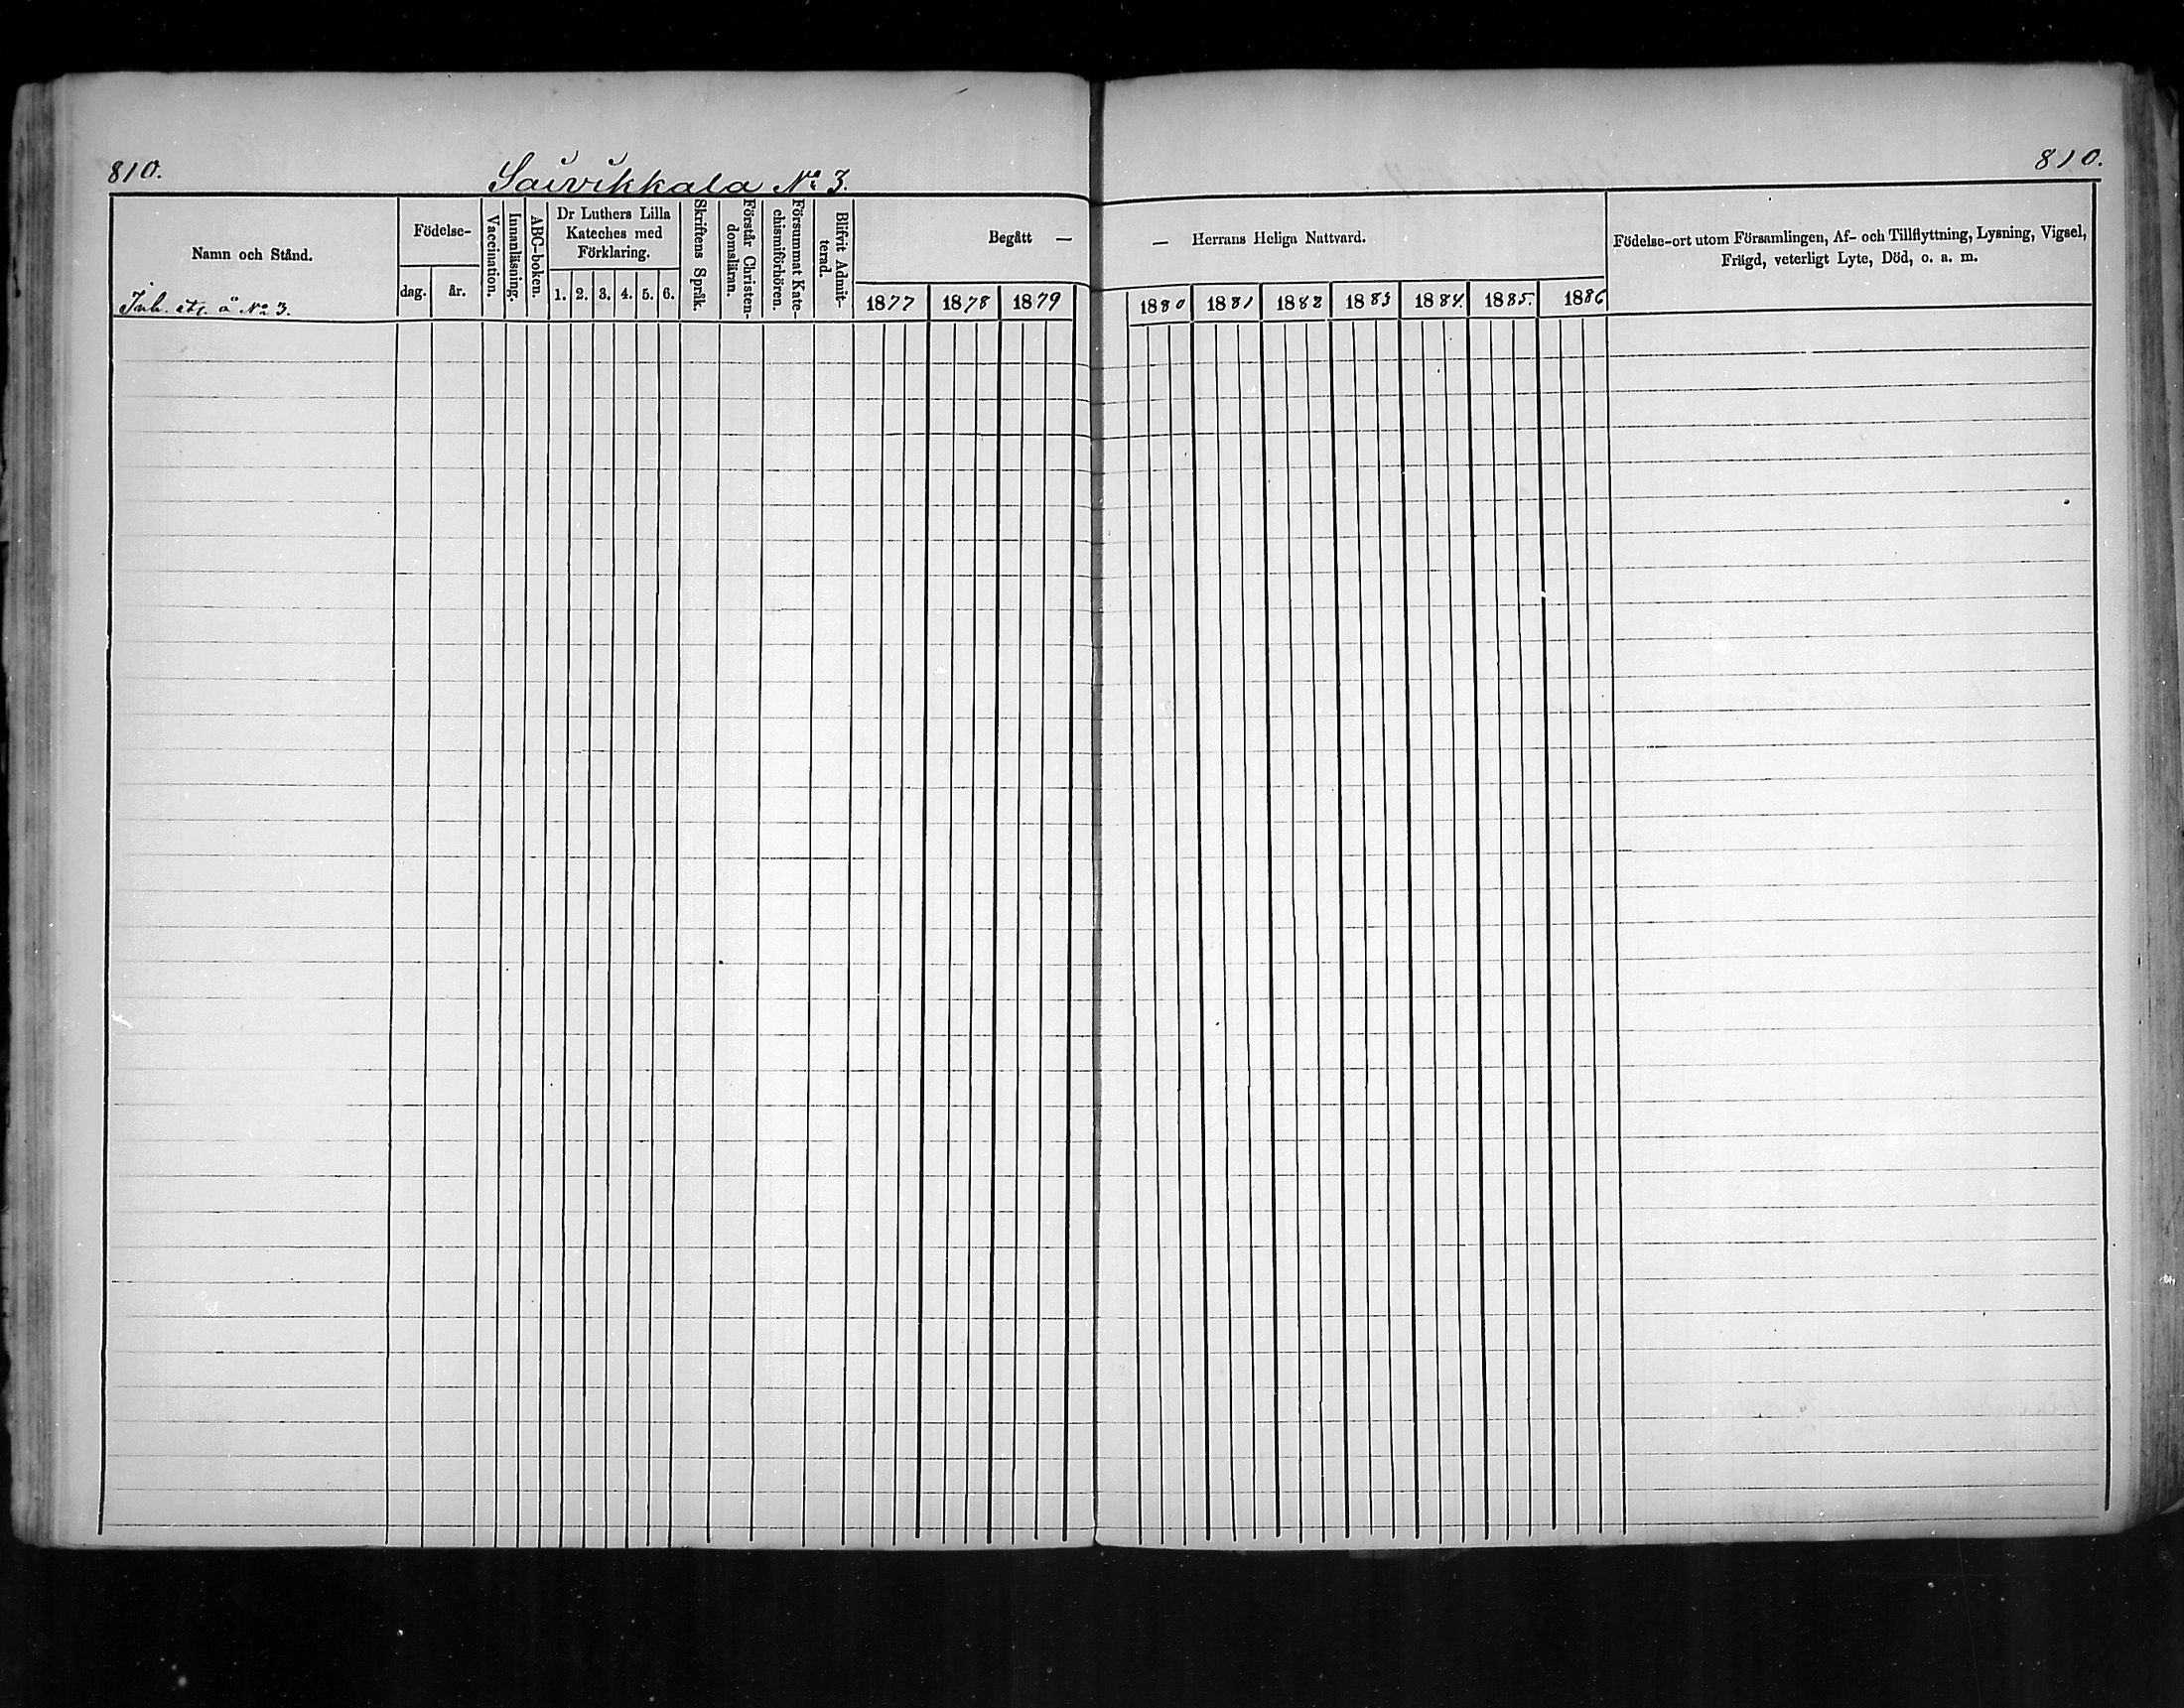 810.
Saivikkala No 3.
810.
Namn och Stånd.
Inh. etc. å No 3.
Födelse-
dag. år.
Vaccination.
Innanläsning.
ABC-boken.
Dr Luthers Lilla
Kateches med
Förklaring.
1. 2. 3. 4. 5. 6.
Skriftens Språk.
Förstår Christen-
domsläran.
Försummat Kate-
chismiförhören.
Blifvit Admit-
terad.
Begått —
1877 1878 1879
— Herrans Heliga Nattvard.
1880 1881 1882 1883 1884. 1885. 1886
Födelse-ort utom Församlingen, Af- och Tillflyttning, Lysning, Vigsel,
Frägd, veterligt Lyte, Död, o. a. m.